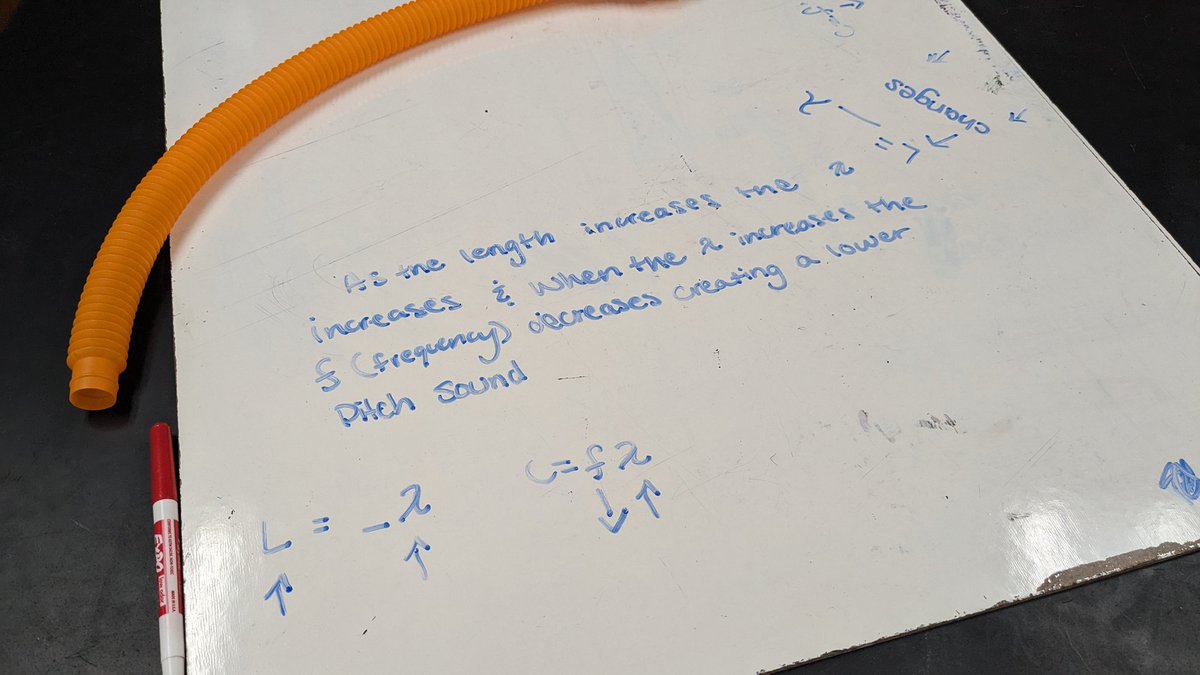 As the length increases the λ
increases & when the λ increases the
f (frequency) decreases creating a lower
Pitch Sound
L = _ λ
↑ ↑
c = f λ
↓ ↑
changes
L = _ λ
EXPO